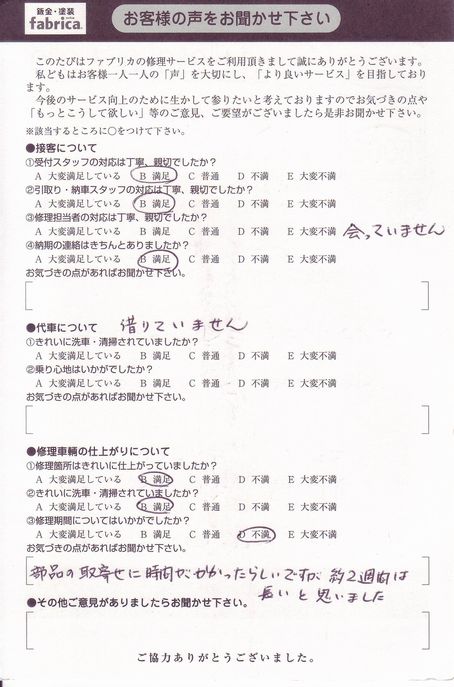 鈑金・塗装
fabrica.
お客様の声をお聞かせ下さい
このたびはファブリカの修理サービスをご利用頂きまして誠にありがとうございます。
私どもはお客様一人一人の「声」を大切にし、「より良いサービス」を目指しており
ます。
今後のサービス向上のために生かして参りたいと考えておりますのでお気づきの点や
「もっとこうして欲しい」等のご意見、ご要望がございましたら是非お聞かせ下さい。
※該当するところに○をつけて下さい。
●接客について
①受付スタッフの対応は丁寧、親切でしたか?
A 大変満足している B 満足 C 普通 D 不満 E 大変不満
②引取り・納車スタッフの対応は丁寧、親切でしたか?
A 大変満足している B 満足 C 普通 D 不満 E 大変不満
③修理担当者の対応は丁寧、親切でしたか?
A 大変満足している B 満足 C 普通 D 不満 E 大変不満 会っていません
④納期の連絡はきちんとありましたか?
A 大変満足している B 満足 C 普通 D 不満 E 大変不満
お気づきの点があればお聞かせ下さい。
●代車について 借りていません
①きれいに洗車・清掃されていましたか?
A 大変満足している B 満足 C 普通 D 不満 E 大変不満
②乗り心地はいかがでしたか?
A 大変満足している B 満足 C 普通 D 不満 E 大変不満
お気づきの点があればお聞かせ下さい。
●修理車輌の仕上がりについて
①修理箇所はきれいに仕上がっていましたか?
A 大変満足している B 満足 C 普通 D 不満 E 大変不満
②きれいに洗車・清掃されていましたか?
A 大変満足している B 満足 C 普通 D 不満 E 大変不満
③修理期間についてはいかがでしたか?
A 大変満足している B 満足 C 普通 D 不満 E 大変不満
お気づきの点があればお聞かせ下さい。
部品の取寄せに時間がかかったらしいですが 約2週間は
長いと思いました
●その他ご意見がありましたらお聞かせ下さい。
ご協力ありがとうございました。